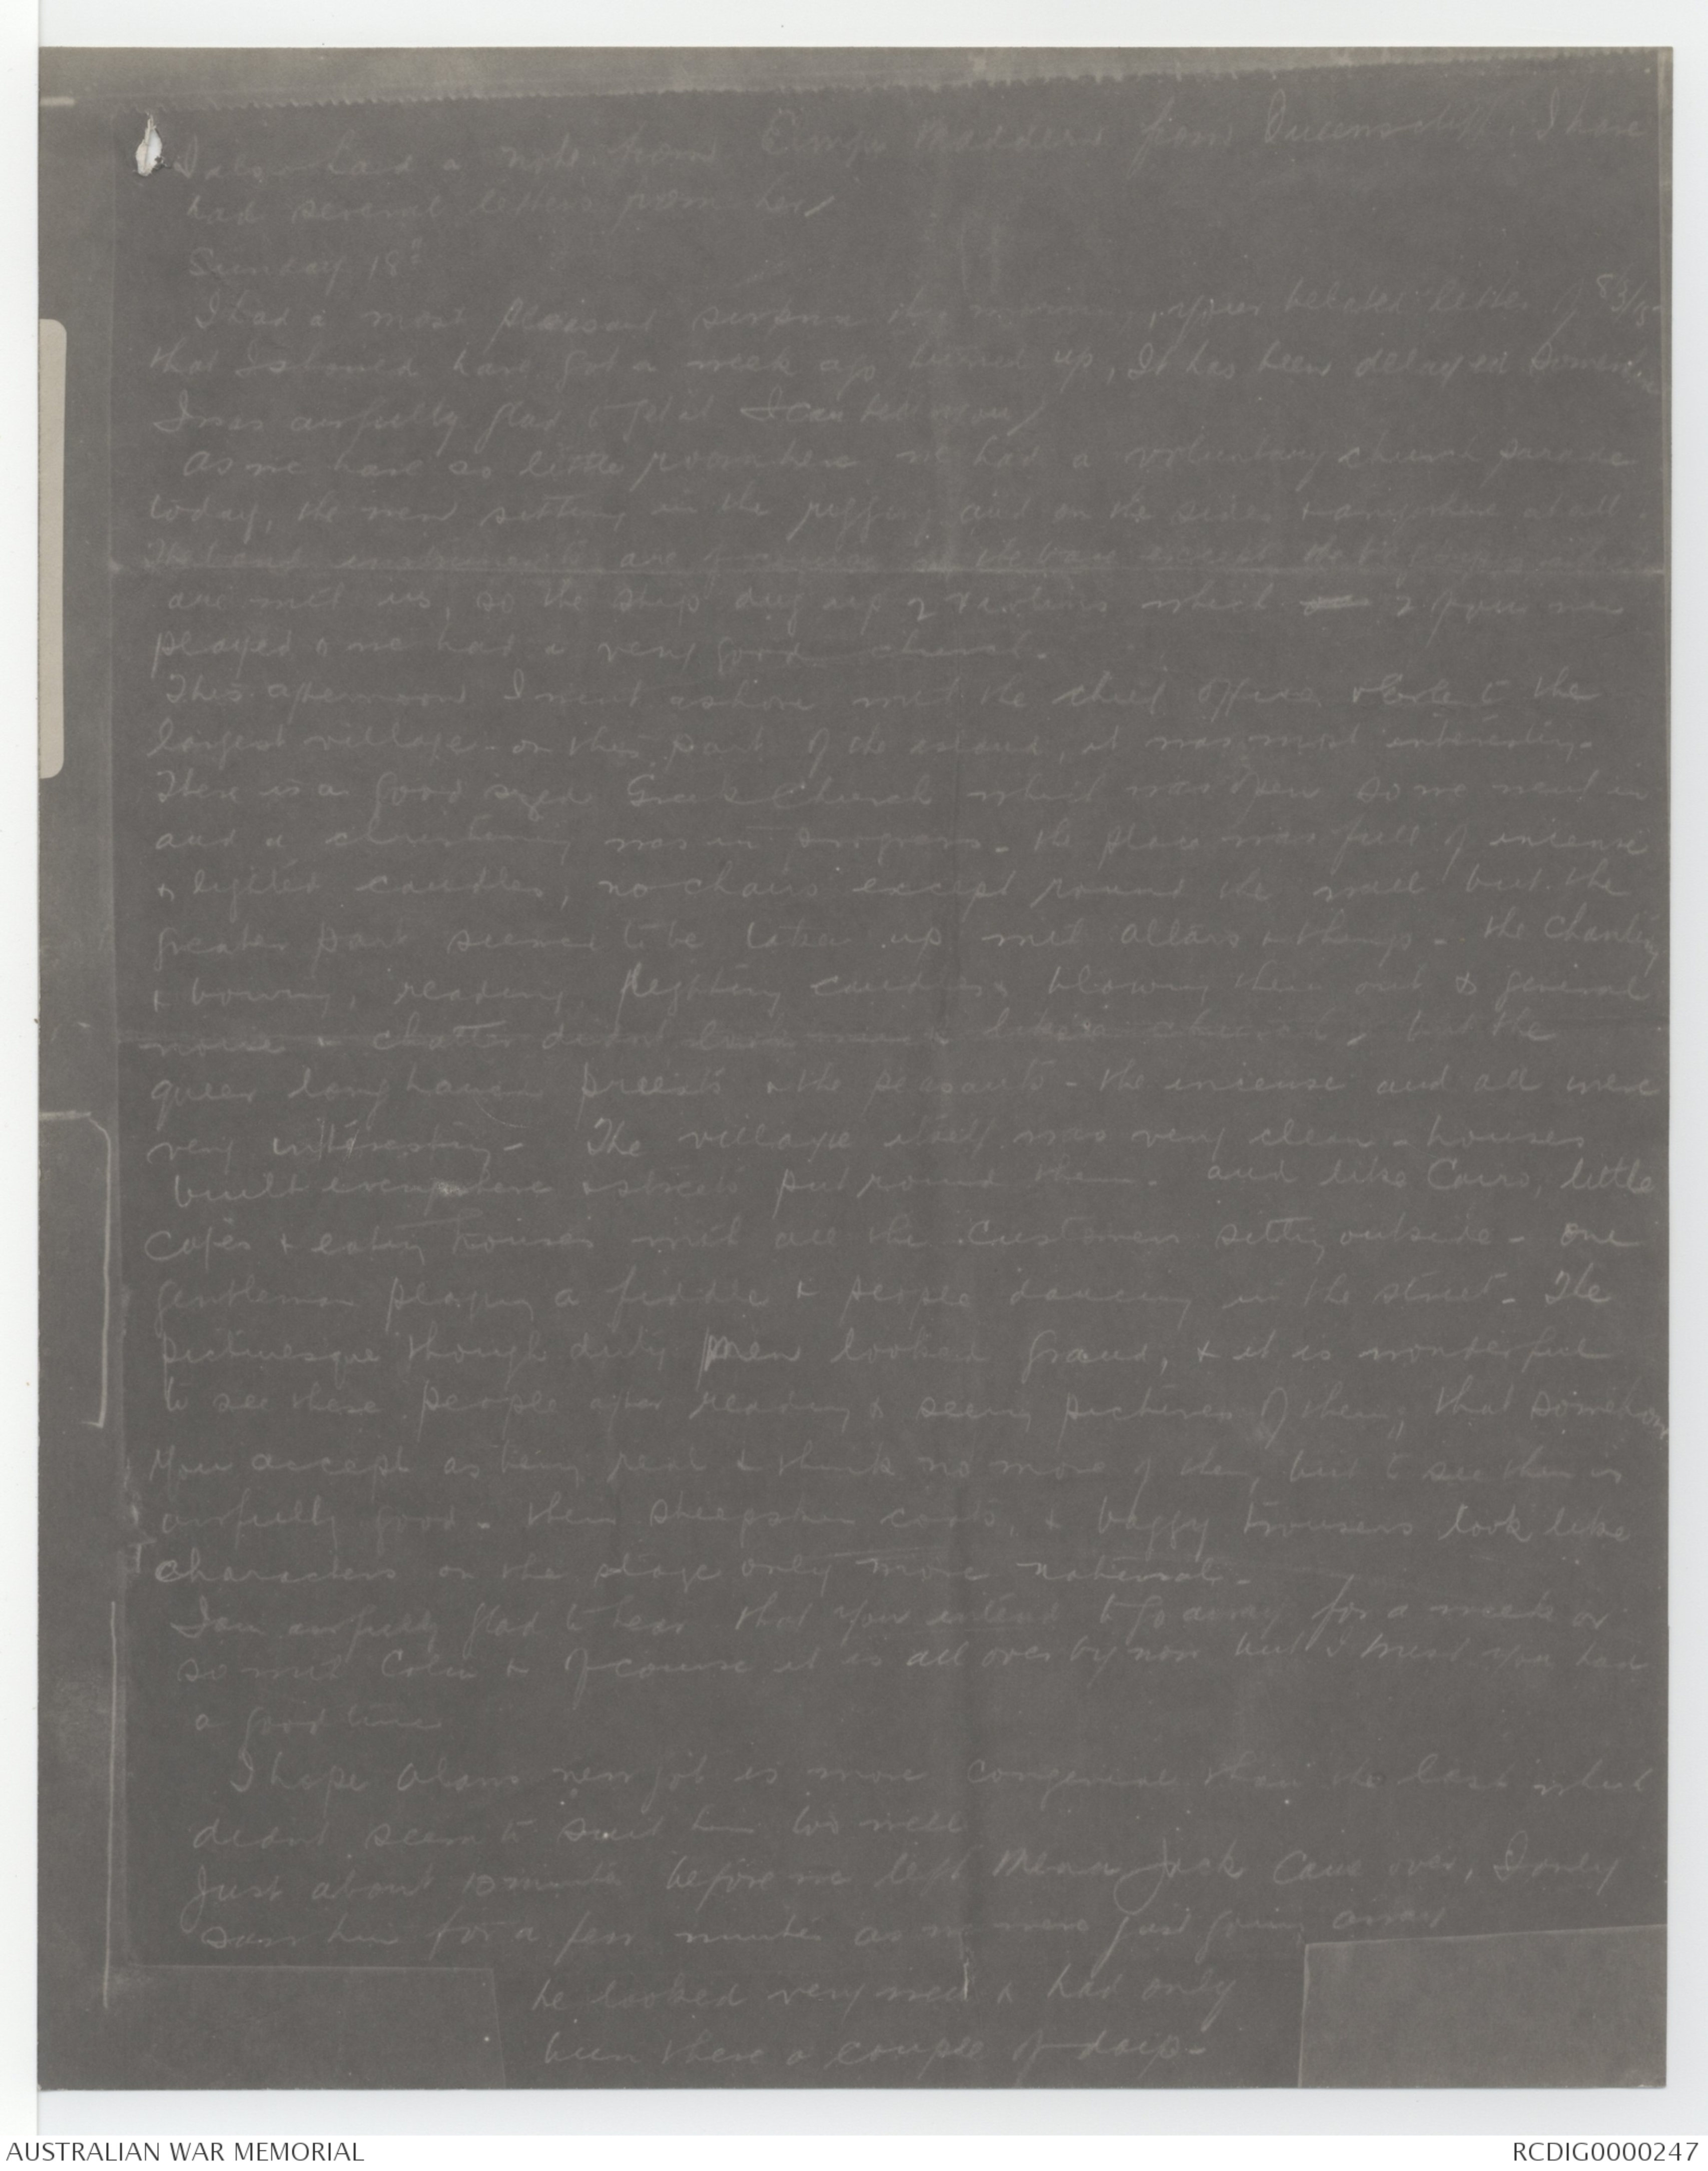 I also had a note from Madden from Queenscliff, I have
had several letters from her/
Sunday 18th
I had a most pleasant surprise this morning, your belated letter of 8/3/15
that I should have got a week ago turned up, It has been delayed
I was awfully glad to get it I can tell you/
As we have so little room here we had a voluntary church parade
today, the men sitting in the rigging and on the sides & anywhere at all.
The band instruments are of course in the
are with us, so the ship dug up 2 violins which 2 of our men
played & we had a very good church.
This afternoon I went ashore with the chief officer to the
largest village on this part of the island, it was most interesting.
There is a good sized Greek Church which was open so we went in
and a christening was in progress - the place was full of incense
& lighted candles, no chairs except round the wall but the
greater part seemed to be taken up with altars & things - the chanting
& bowing, reading, lighting candles & blowing them out & general
noise & chatter didnt look much like a church, but the
queer long haired priests & the peasants - the incense and all were
very interesting - The village itself was very clean - houses
built everywhere & streets put round them - and like Cairo, little
Cafes & eating houses with all the customers sitting outside - one
gentleman playing a fiddle & people dancing in the street - The
picturesque though dirty men looked grand, & it is wonderful
to see these people after reading & seeing pictures of them, that somehow
you accept as being real & think no more of them, but to see them is
awfully good - their sheepskin coats, & baggy trousers look like
characters on the stage only more natural -
I am awfully glad to hear that you intend to go away for a week or
so with Colin & of course it is all over by now but I trust you had
a good time
I hope Alans new job is more congenial than the last which
didnt seem to suit him too well
Just about 10 minutes before we left Mena Jack came over, I only
saw him for a few minutes as we were just going away
he looked very well & had only
been there a couple of days -
AUSTRALIAN WAR MEMORIAL
RCDIG0000247